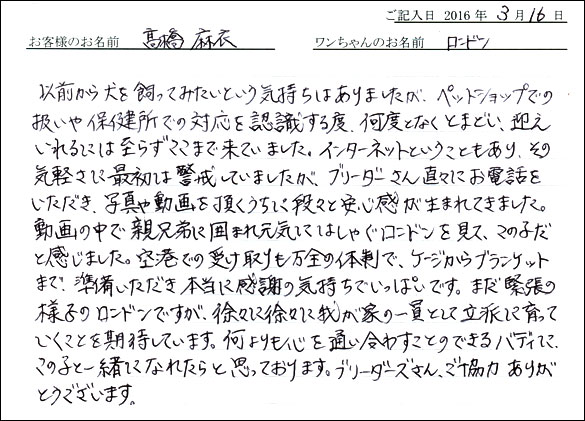 ご記入日 2016年 3月16日
お客様のお名前 髙橋 麻衣 ワンちゃんのお名前 ロンドン
以前から犬を飼ってみたいという気持ちはありましたが、ペットショップでの
扱いや保健所での対応を認識する度、何度となくとまどい、迎え
いれるには至らずここまで来ていました。インターネットということもあり、その
気軽さに最初は警戒していましたが、ブリーダーさん直々にお電話を
いただき、写真や動画を頂くうちに段々と安心感が生まれてきました。
動画の中で親兄弟に囲まれ元気にはしゃぐロンドンを見て、この子だ
と感じました。空港での受け取りも万全の体制で、ケージからブランケット
まで、準備いただき本当に感謝の気持ちでいっぱいです。まだ緊張の
様子のロンドンですが、徐々に徐々に我が家の一員として立派に育って
いくことを期待しています。何よりも心を通い合わすことのできるバディに、
この子と一緒になれたらと思っております。ブリーダーズさん、ご協力ありが
とうございます。